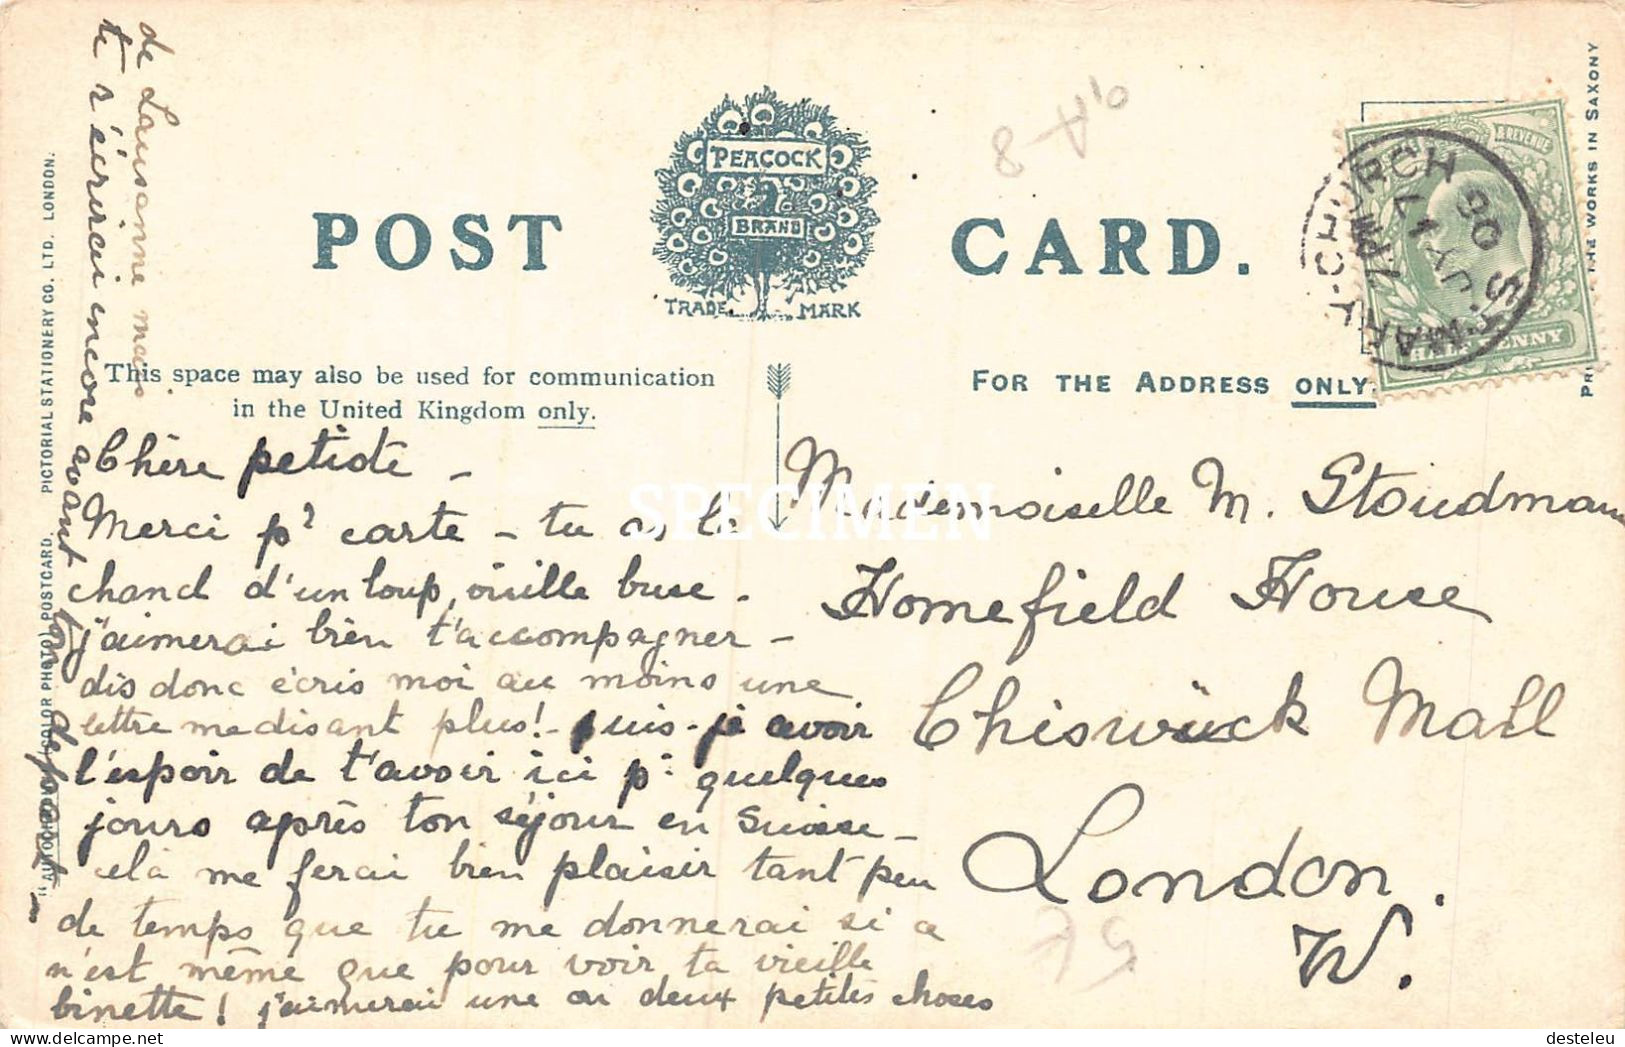 POST CARD.
PEACOCK
BRAND
TRADE MARK
This space may also be used for communication
in the United Kingdom only.
FOR THE ADDRESS ONLY.
"AUTOCHROM" (COLOR PHOTO) POSTCARD. PICTORIAL STATIONERY CO. LTD. LONDON.
THE WORKS IN SAXONY
& REVENUE
HALFPENNY
ST. MARY-CHURCH
7 PM
JY 17
06
Chère petiote -
Merci pr carte - tu as la
chance d'un loup, vieille buse -
j'aimerai bien t'accompagner -
dis donc écris moi au moins une
lettre me disant plus! - puis-je avoir
l'espoir de t'avoir ici pr quelques
jours après ton séjour en Suisse -
celà me ferai bien plaisir tant peu
de temps que tu me donnerai si ce
n'est même que pour voir ta vieille
binette! j'aimerai une ou deux petites choses
de Lausanne mais
te r'écrirai encore avant ton départ -
Mademoiselle M. Stoudmann
Homefield House
Chiswick Mall
London.
W.
SPECIMEN
desteleu